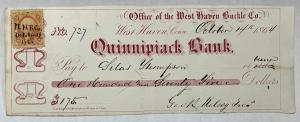 Office of the West Haven Buckle Co.
No. 727 West Haven, Conn October 14th 1864
Quinnipiack Bank,
Pay to Silas Thompson or
One Hundred and Seventy Five Dollars
$175